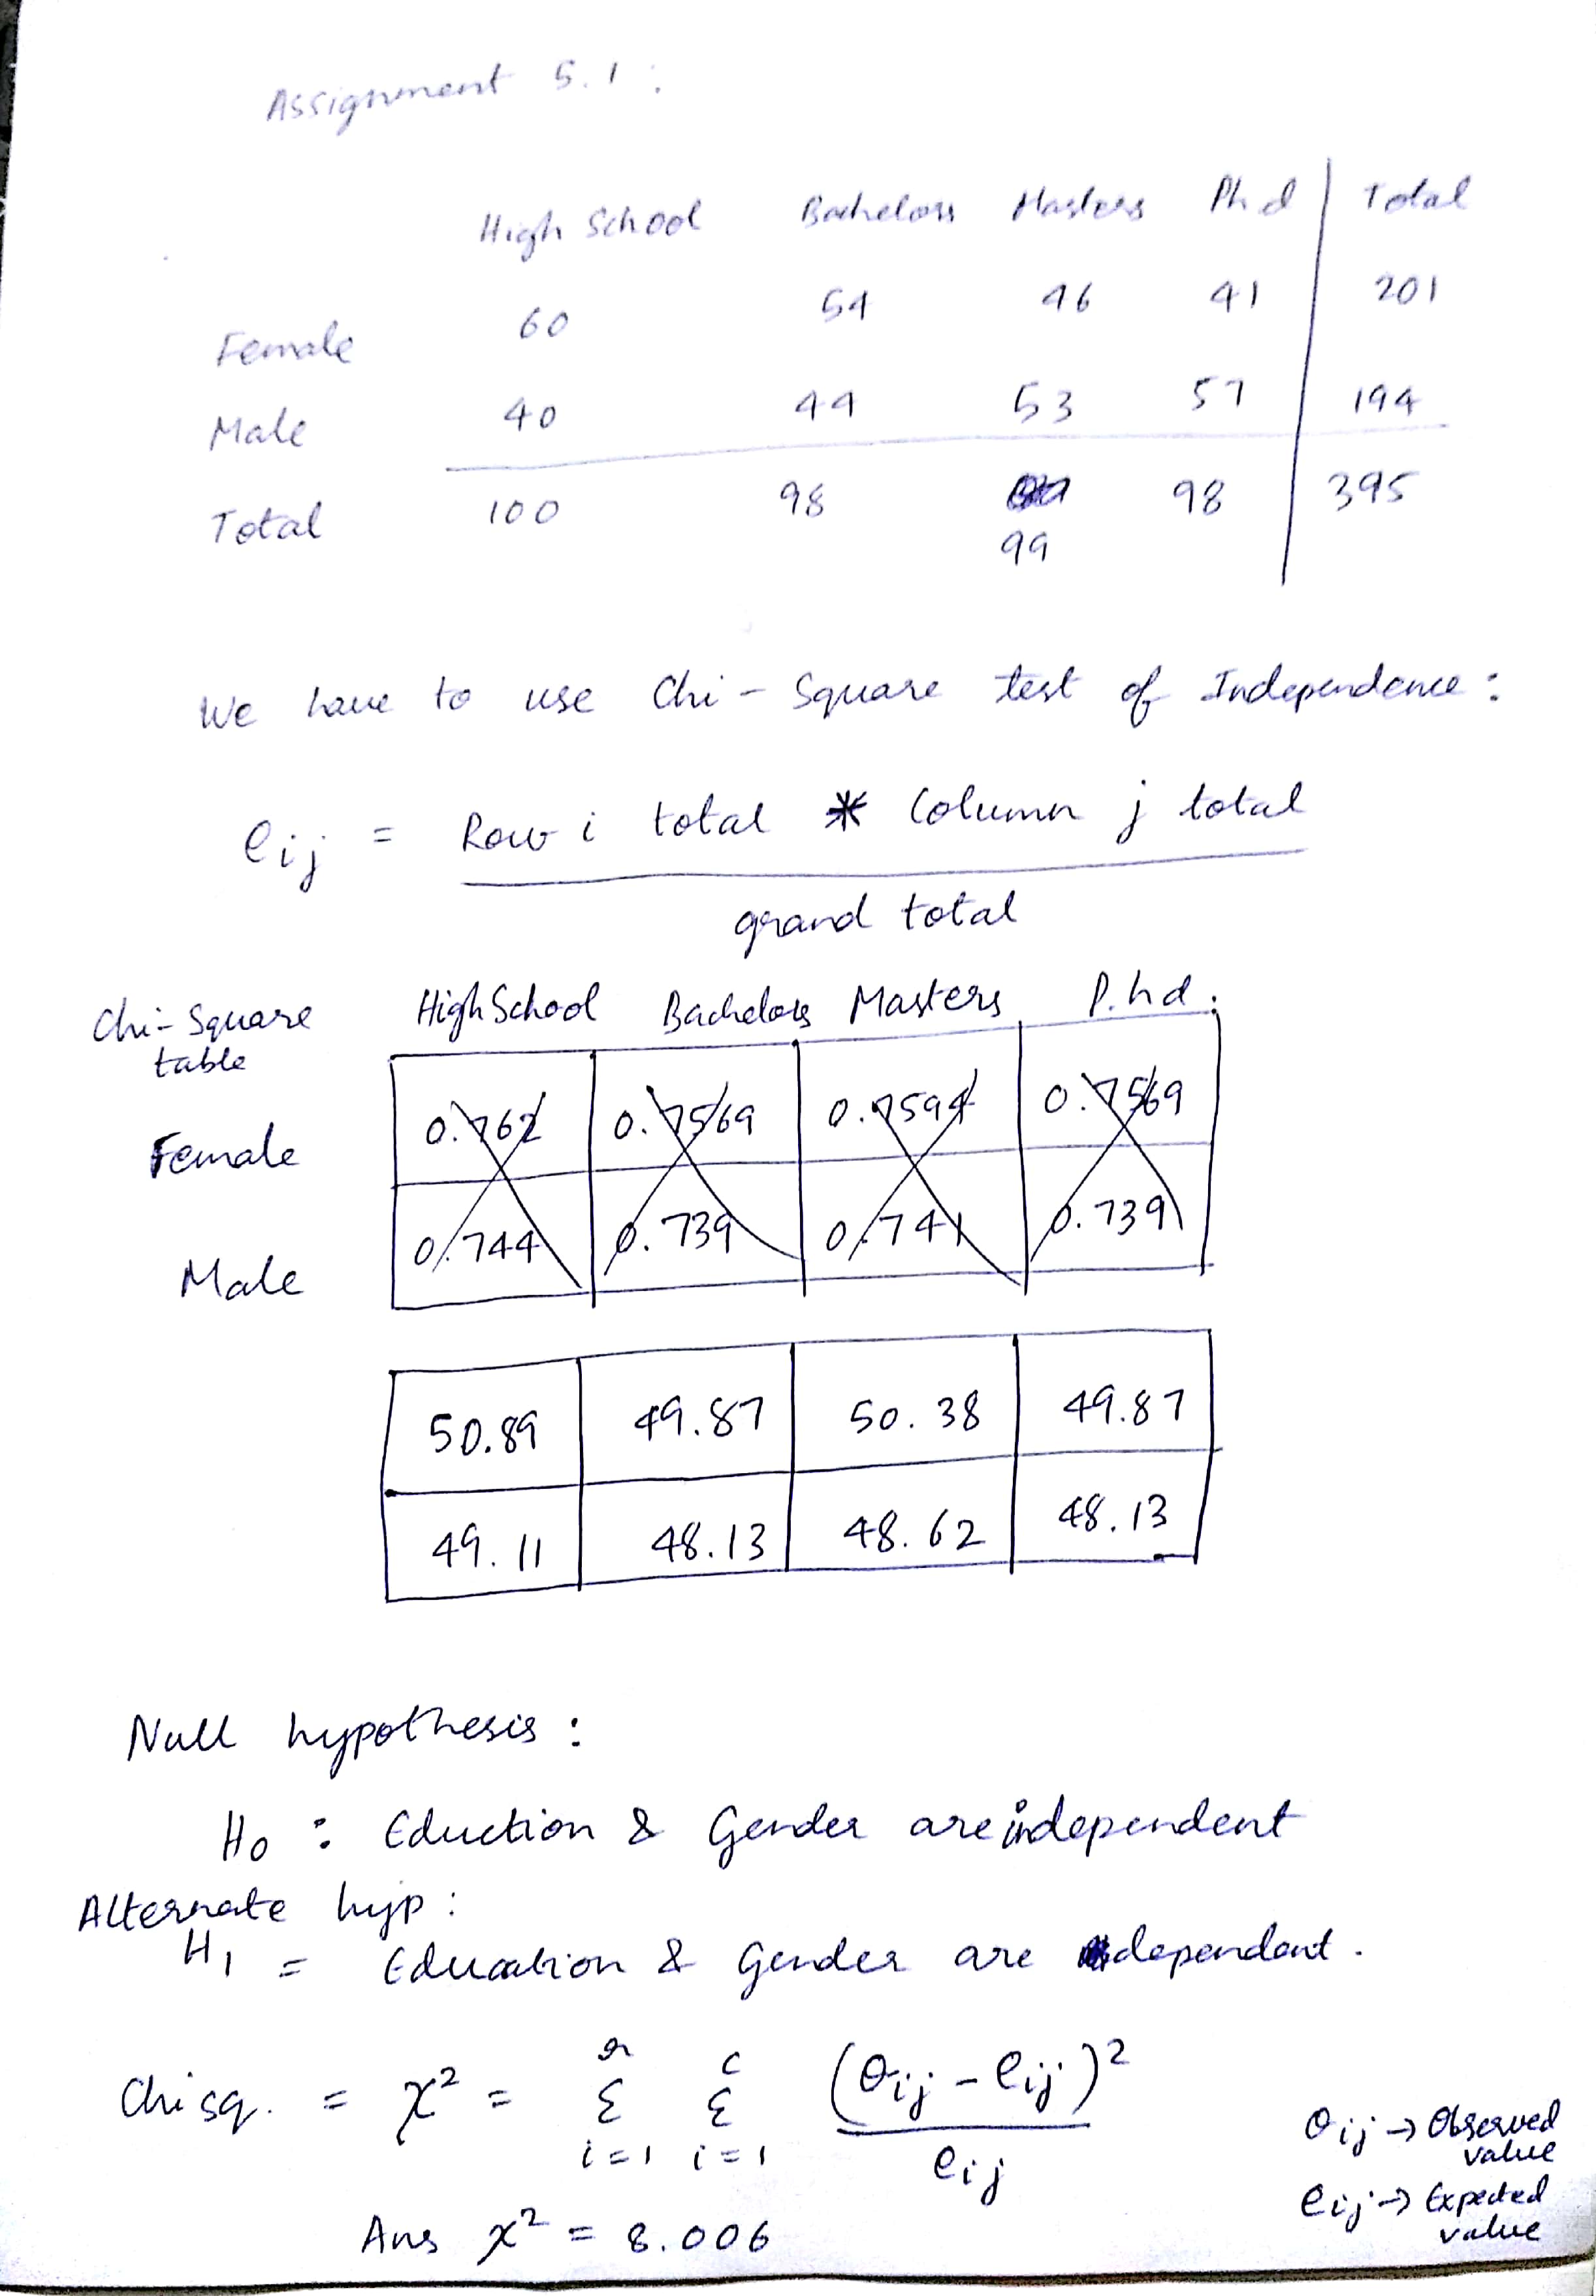 Assignment 5.1 :
High School Bachelors Masters Ph d Total
Female 60 54 46 41 201
Male 40 44 53 57 194
Total 100 98 98 395
99
We have to use Chi - Square test of Independence :
eij = Row i total * Column j total
grand total
Chi-Square table High School Bachelors Masters P.hd.
Female 0.762 0.7569 0.7594 0.7569
Male 0.744 0.739 0.741 0.739
50.89 49.87 50.38 49.87
49.11 48.13 48.62 48.13
Null hypothesis :
H0 : Eduction & Gender are independent
Alternate hyp :
H1 = Education & Gender are dependent.
Chi sq. = χ² = r Σ i=1 c Σ i=1 (Oij - eij)²
eij
Oij → Observed value
eij → Expected value
Ans χ² = 8.006